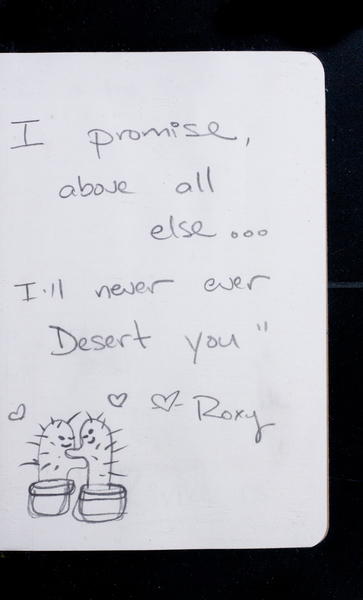 I promise,
above all
else...
I'll never ever
Desert you"
♡- Roxy